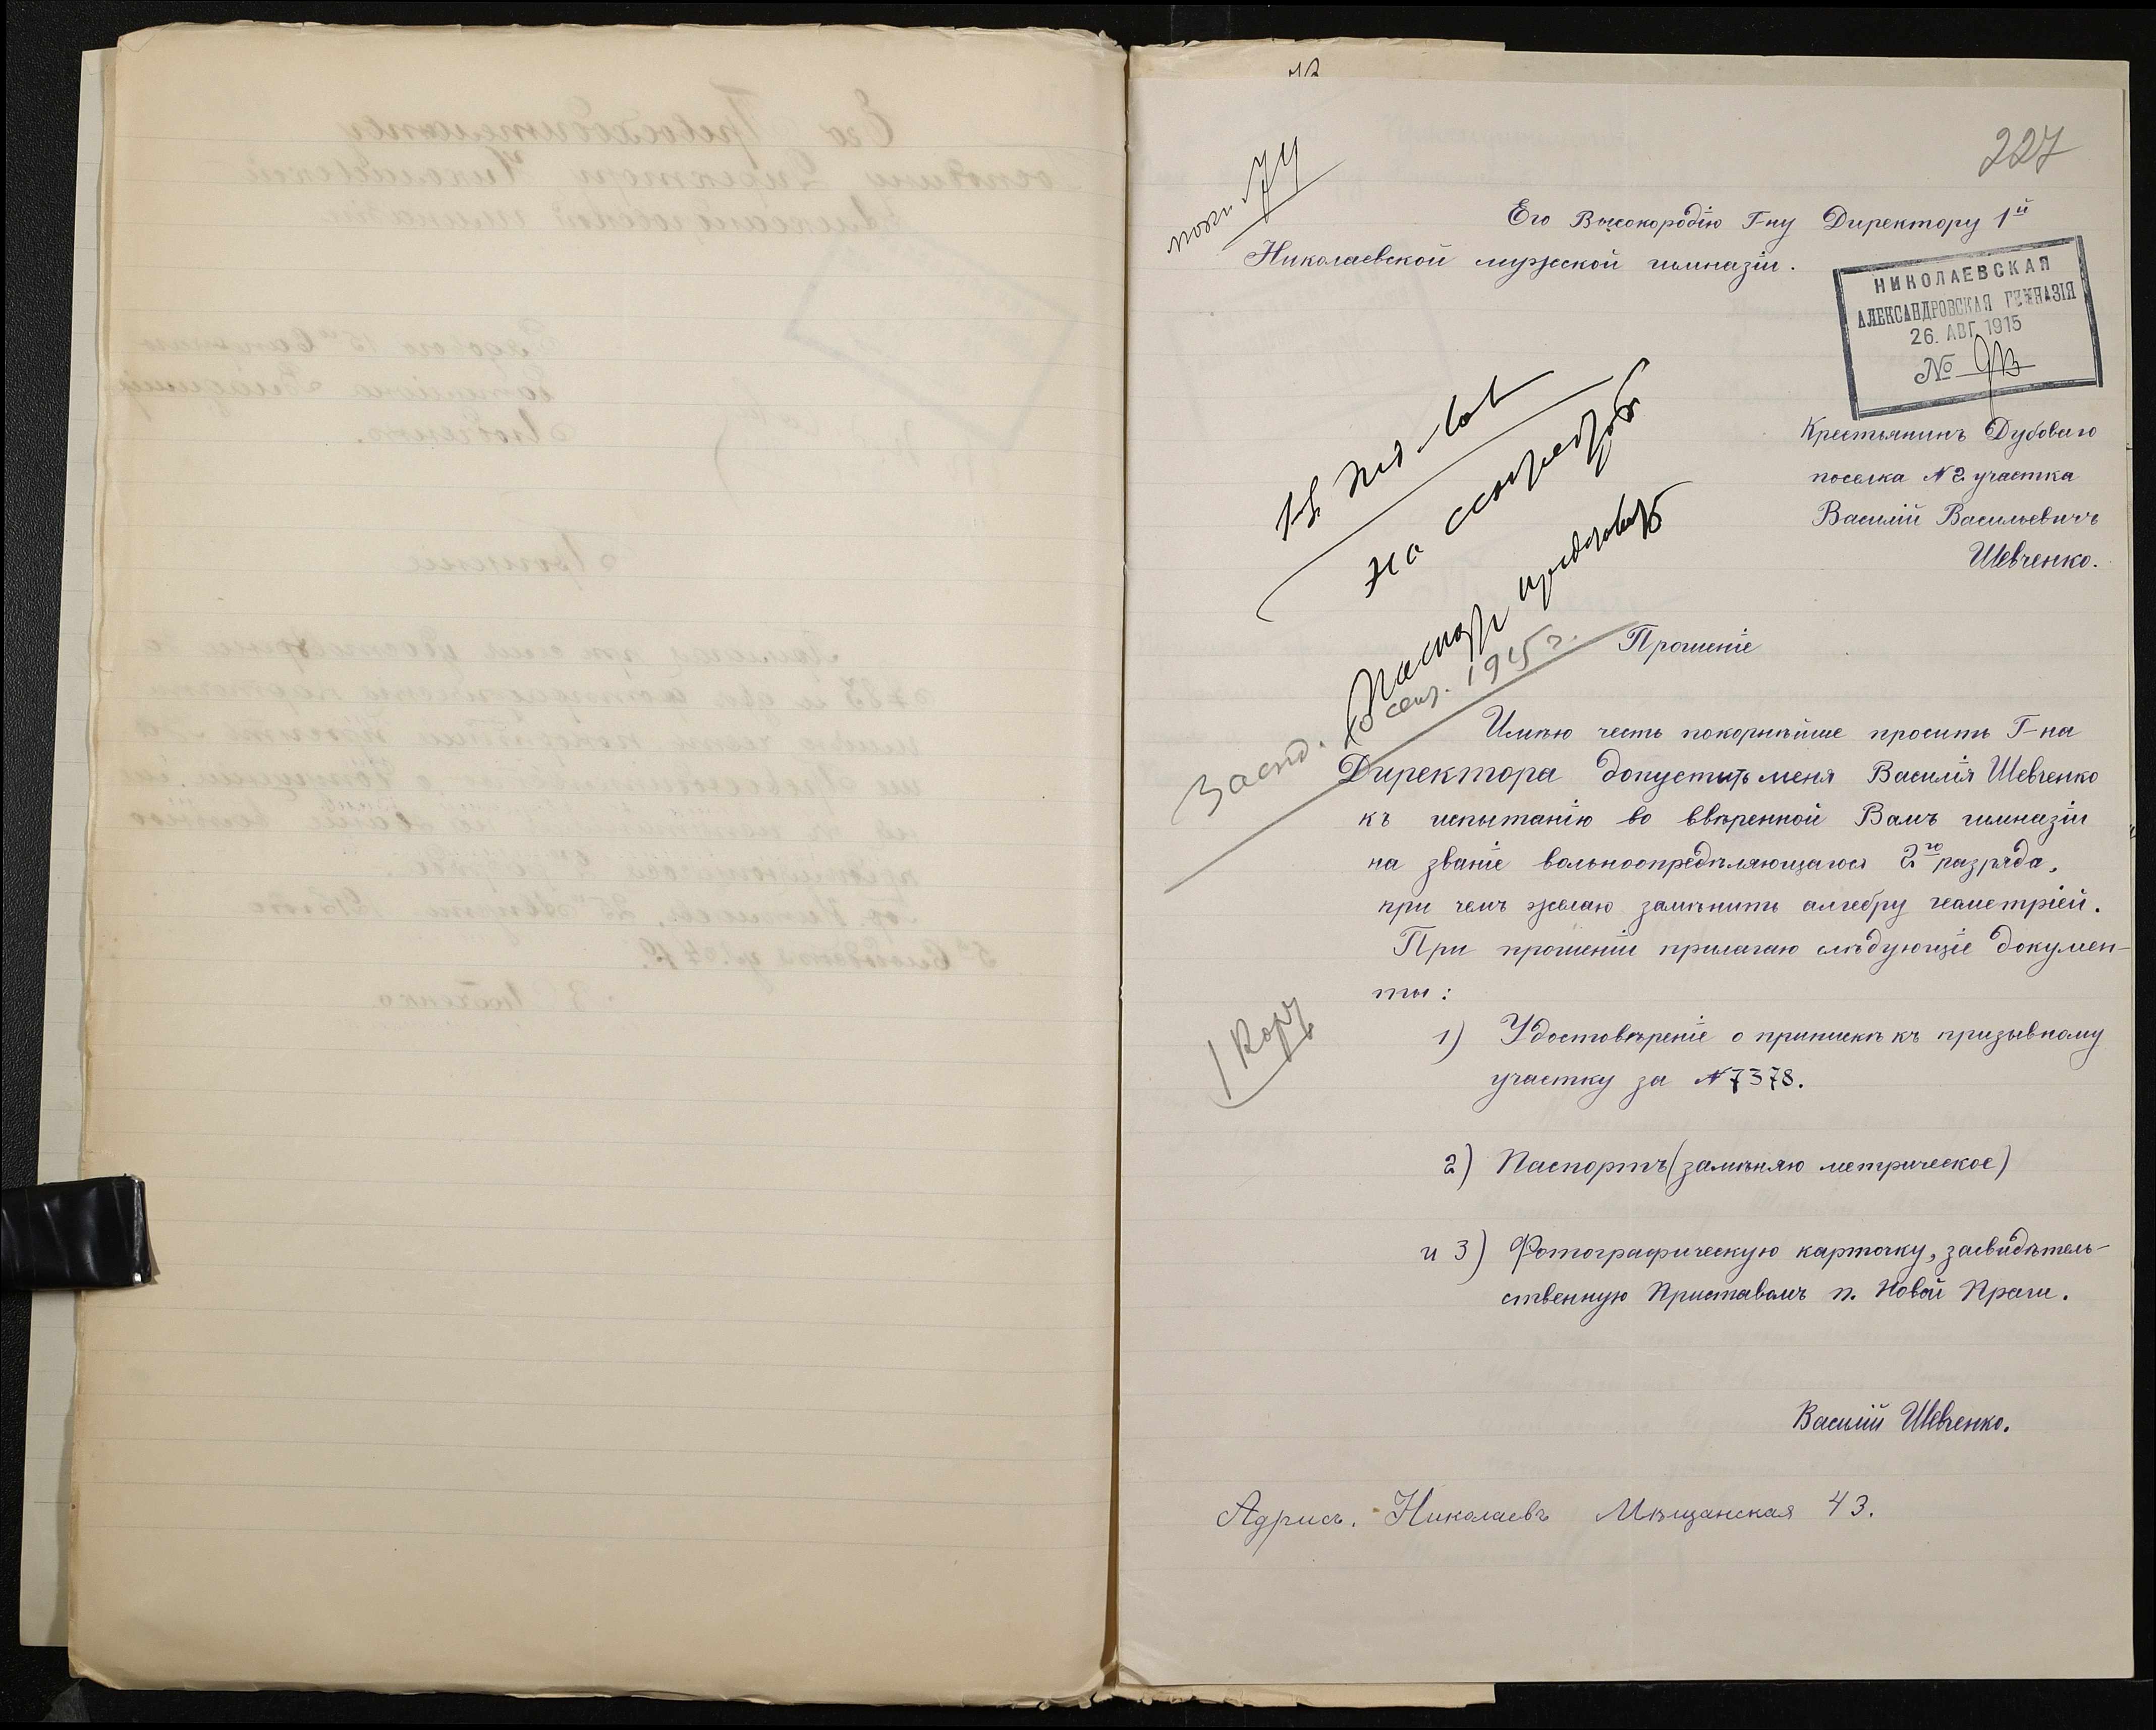 227
74
Его Высокородію Г-ну Директору 1й
Николаевской мужеской гимназіи.
НИКОЛАЕВСКАЯ
АЛЕКСАНДРОВСКАЯ ГИМНАЗІЯ
26. АВГ. 1915
№
Крестьянинъ Дубоваго
поселка № 2 участка
Василій Васильевичъ
Шевченко.
на
Паспорт
Засѣд. 10 сент. 1915 г.
Прошеніе
Имѣю честь покорнѣйше просить Г-на
Директора допустить меня Василія Шевченко
къ испытанію во ввѣренной Вамъ гимназіи
на званіе вольноопредѣляющагося 2го разряда,
при чемъ желаю замѣнить алгебру геаметріей.
При прошеніи прилагаю слѣдующіе докумен-
ты:
1) Удостовѣреніе о припискѣ къ призывному
участку за № 7378.
2) Паспортъ (замѣняю метрическое)
и 3) Фотографическую карточку, засвидѣтель-
ственную Приставомъ п. Новой Праги.
Василій Шевченко.
Адрисъ. Николаевъ Мѣщанская 43.